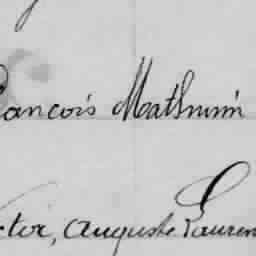 ancois Mathurin
ctor, Auguste Lauren